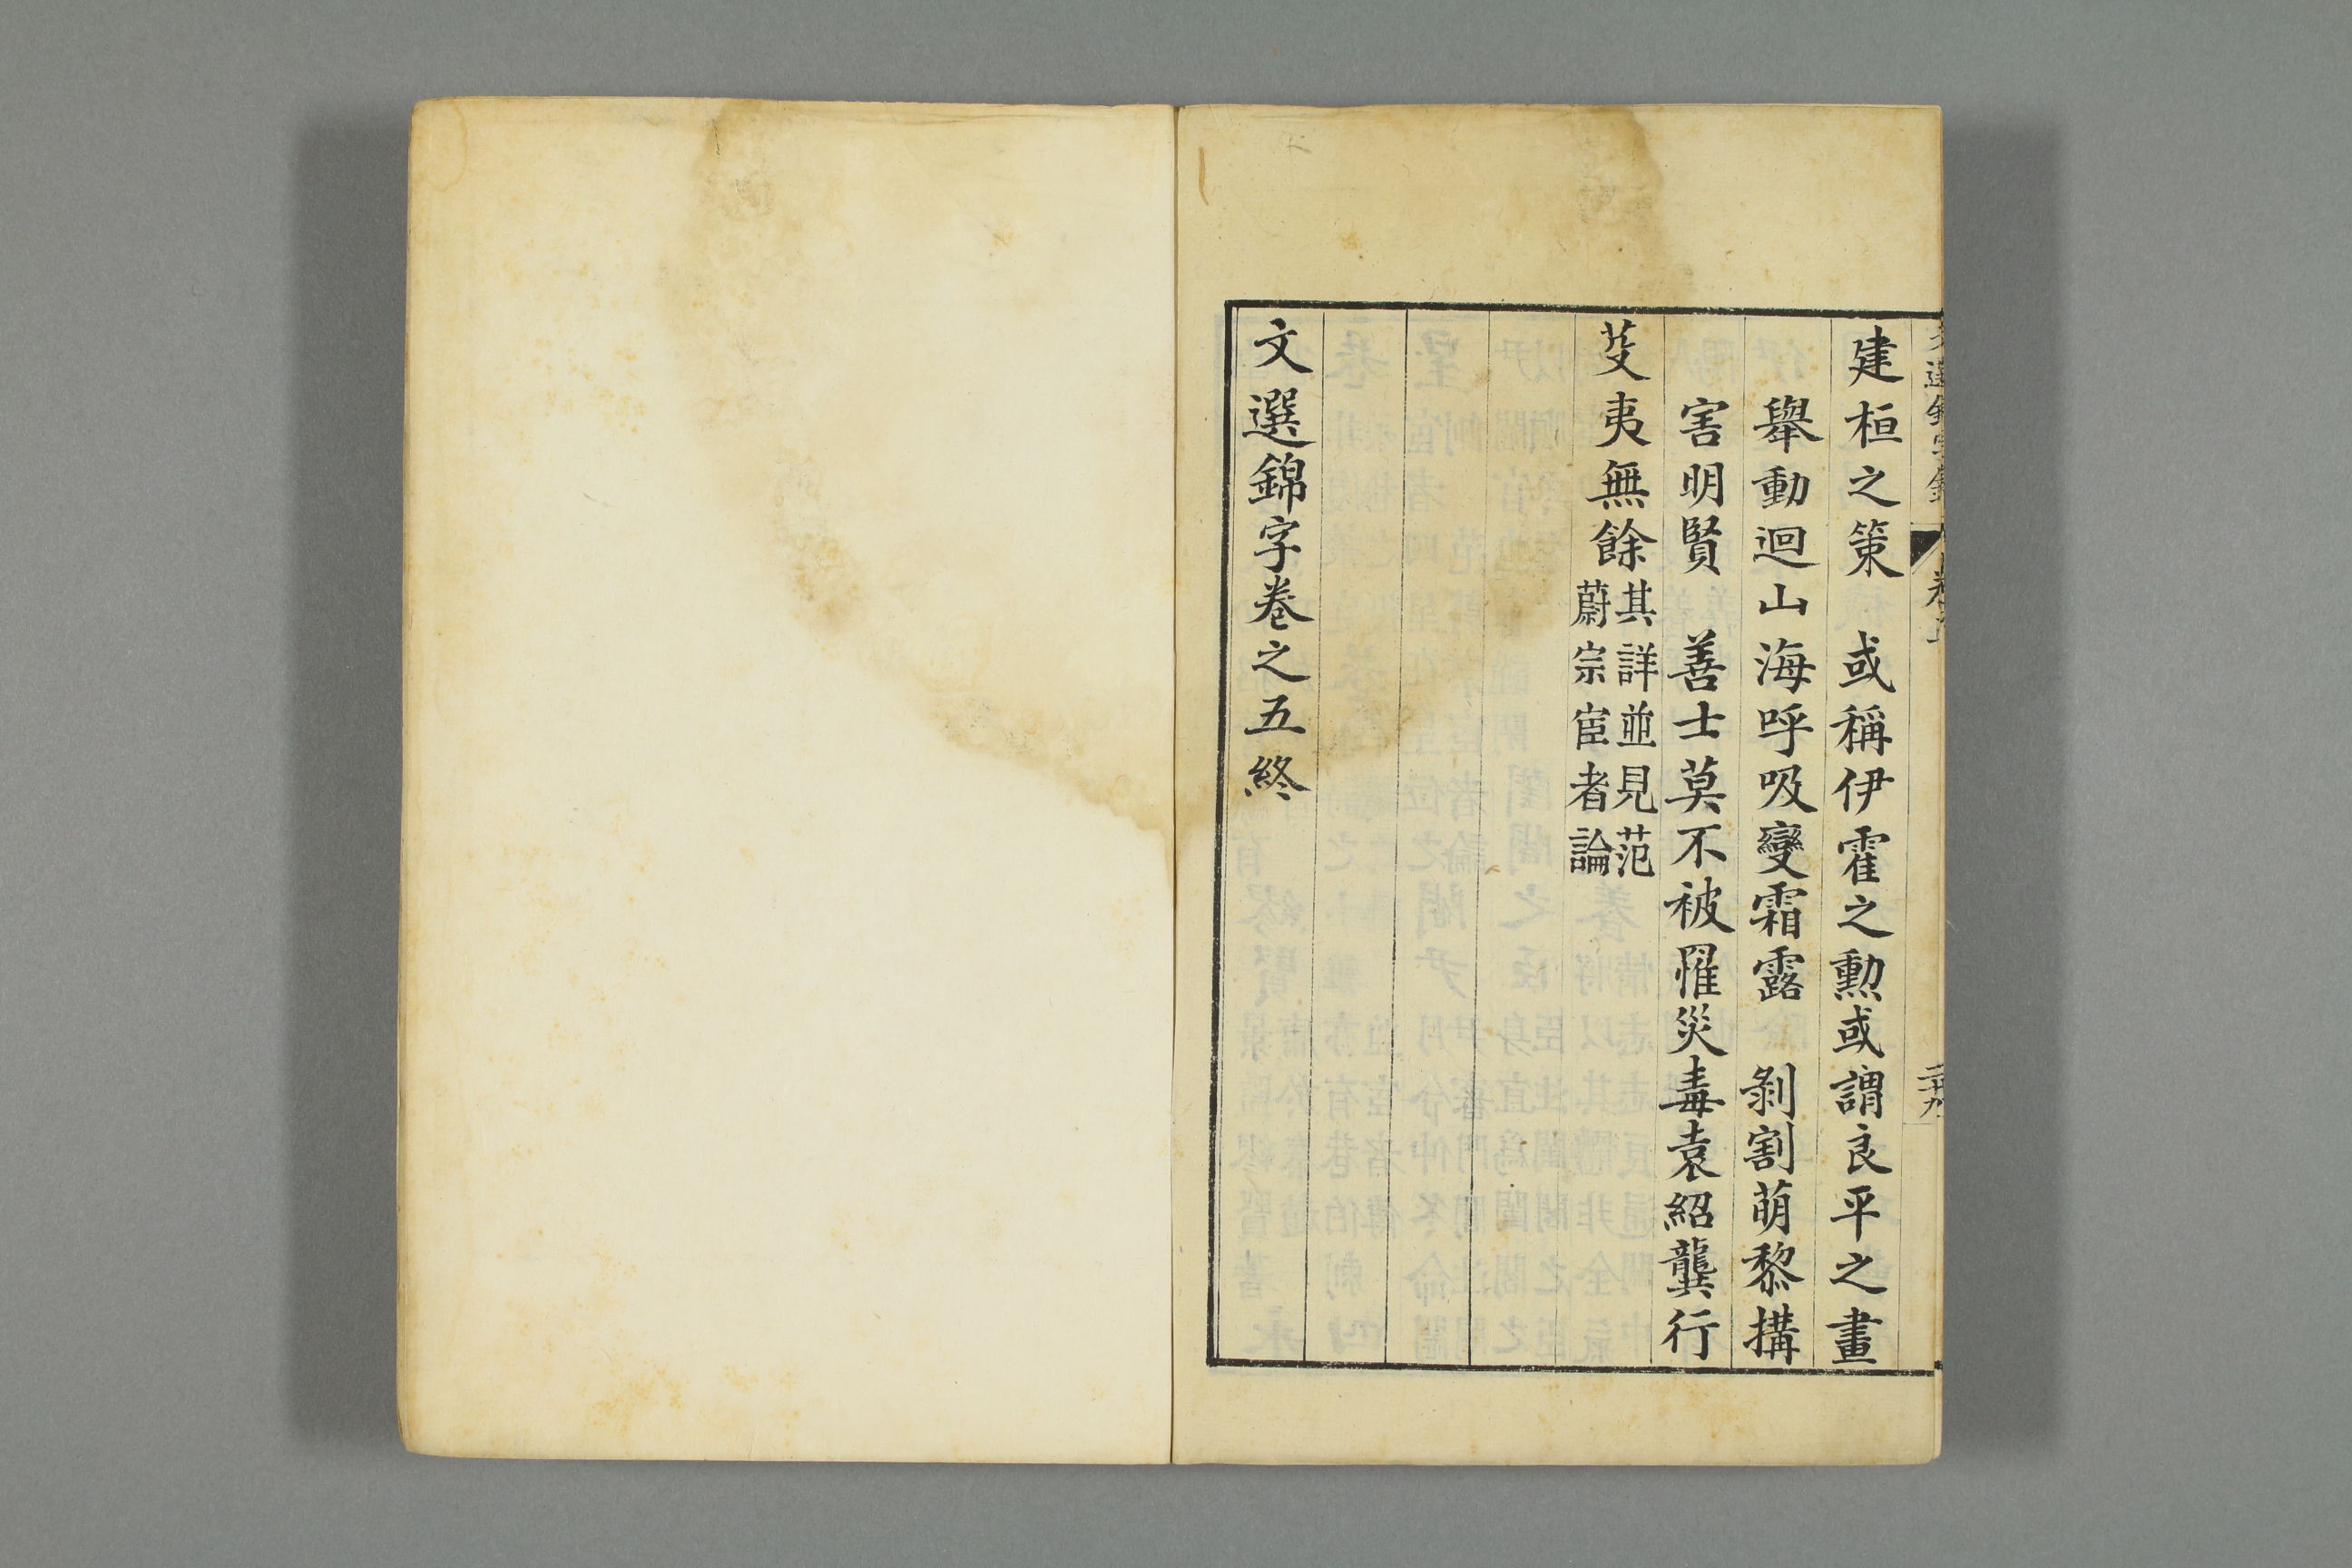 建桓之策　或稱伊霍之勳或謂良平之畫
舉動迴山海呼吸變霜露　剝割萌黎搆
害明賢　善士莫不被罹災毒袁紹龔行
芟夷無餘其詳並見范
蔚宗宦者論
文選錦字卷之五終